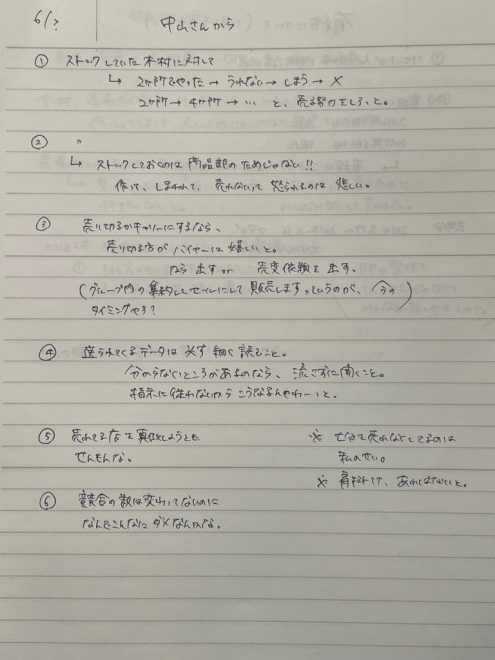 6/?
中山さんから
① ストックしていた木材に対して
↳ 2ヶ所をやった → うれない → しまう → ×
2ヶ所 → 4ヶ所 → … と、売る努力をしろこと。
② 〃
↳ ストックしておくのは商品部のためじゃない!!
作って、しまわれて、売れないって怒られるのは悲しい。
③ 売り切るかキャリーにするなら、
売り切る方がバイヤーは嬉しいと。
なら 出す or 売変依頼を出す。
(グループ内の集約してセールにして販売しますっていうのが、今の
タイミングやろ?
④ 送られてくるデータは必ず細く読むこと。
分からないところがあるのなら、流さずに聞くこと。
指示に従わないから こうなるんやわーいと。
⑤ 売れてる店を真似しようとも
せんもんな。
⑥ 競合の数は変わってないのに
なんでこんなにダメなんかな。
※ 売れなくしてるのは
私のせい。
※ 肩料け、あればないと。